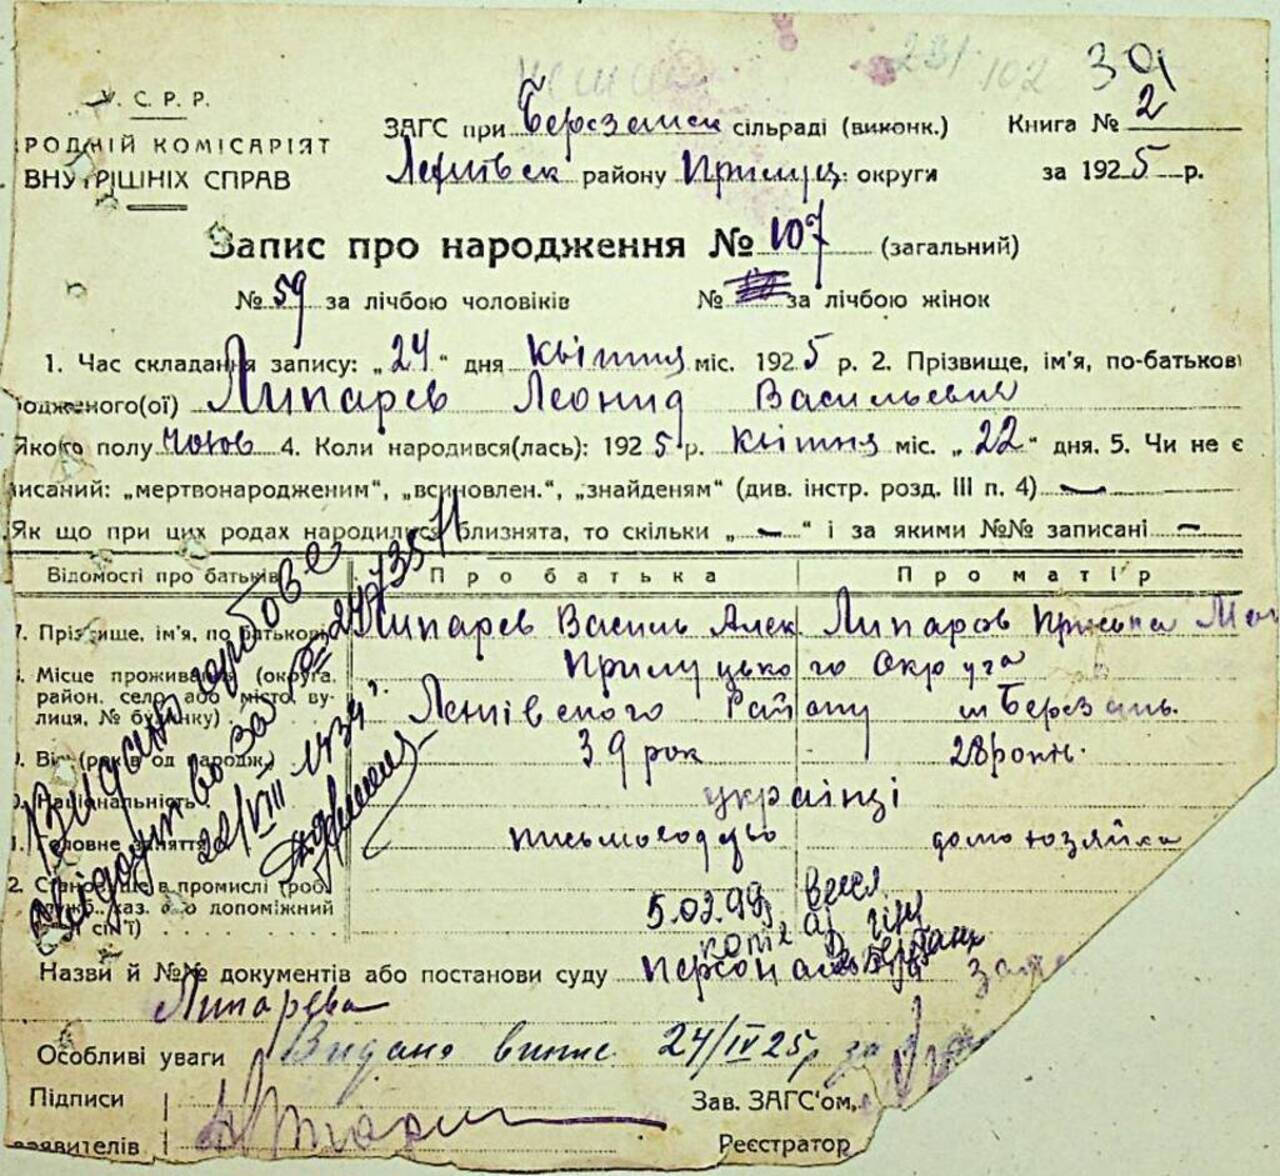 231 102 39
У. С. Р. Р.
РОДНІЙ КОМІСАРІЯТ
ВНУТРІШНІХ СПРАВ
ЗАГС при Березанск сільраді (виконк.)
Книга № 2
район у Прилуц. округи
за 1925 р.
Запис про народження № 107 (загальний)
№ 59 за лічбою чоловіків № за лічбою жінок
1. Час складання запису: „24“ дня квітня міс. 1925 р. 2. Прізвище, ім'я, по-батькові
родженого(ої) Липарев Леонид Васильевич
Якого полу чолов 4. Коли народився(лась): 1925 р. квітня міс. „22“ дня. 5. Чи не є
писаний: „мертвонародженим“, „всиновлен.“, „знайденям“ (див. інстр. розд. III п. 4) —
Як що при цих родах народилися близнята, то скільки „—“ і за якими №№ записані —
Відомості про батьків Про батька Про матір
7. Прізвище, ім'я, по батькові Липарев Василь Алек. Липаров
Місце проживання (округа, Прилуцького Округа
район, село або місто, ву-
лиця, № будинку) Району м Березань.
Вік (років од народж.) 39 рок 28 років.
Національність українці
Головне заняття письмоводство домохозяйка
2. Становище в промислі (роб.
служб. хаз. або допоміжний
сім'ї)
5.02.99
Видано
свідоцтво за
22/VIII 1934 р.
Назви й №№ документів або постанови суду
Липарева
Особливі уваги Видано випис 24/IV 25р
Підписи
заявителів
Зав. ЗАГС'ом,
Реєстратор